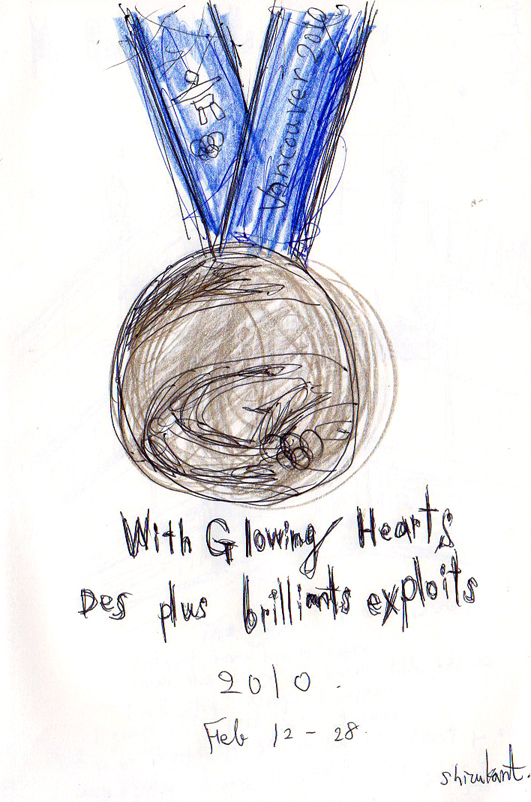 Vancouver 2010
With Glowing Hearts
Des plus brilliants exploits
2010.
Feb 12 - 28.